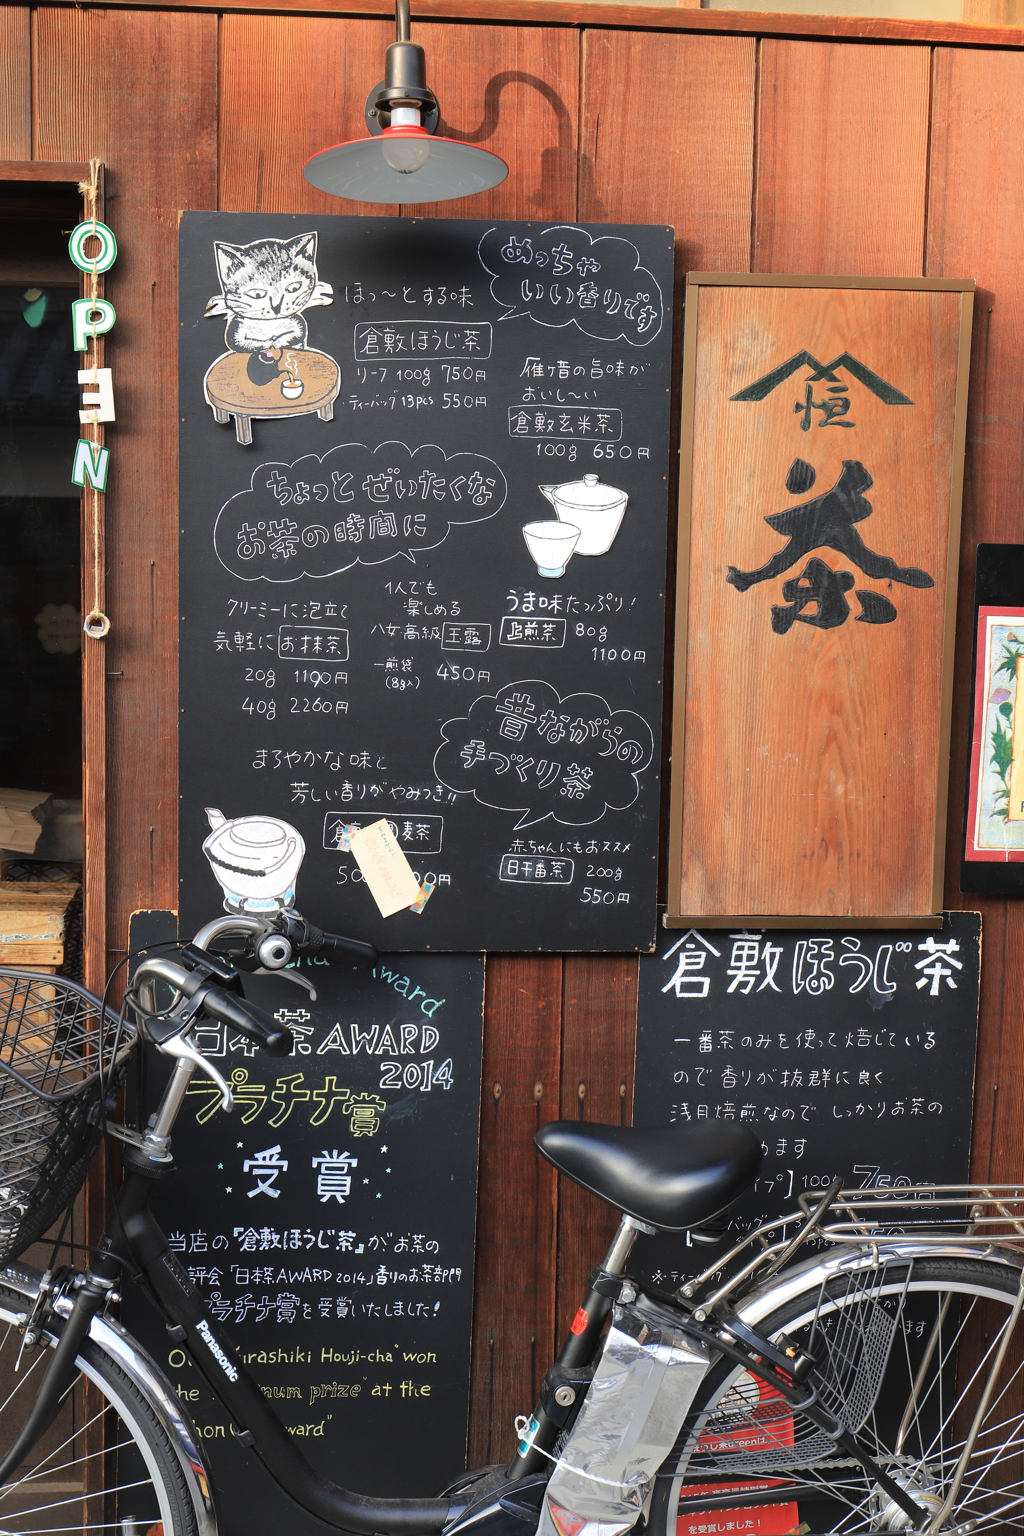 OPEN
ほっ〜とする味
倉敷ほうじ茶
リーフ 100g 750円
ティーバッグ 13pcs 550円
めっちゃ
いい香りです
雁ヶ音の旨味が
おいし〜い
倉敷玄米茶
100g 650円
ちょっと ぜいたくな
お茶の時間に
クリーミーに泡立て
気軽に お抹茶
20g 1190円
40g 2260円
1人でも
楽しめる
八女高級 玉露
一煎袋
(8g入)
450円
うま味たっぷり!
上煎茶 80g
1100円
昔ながらの
手づくり茶
まろやかな味と
芳しい香りがやみつき!!
麦茶
円
赤ちゃんにもおススメ
日干番茶 200g
550円
恒
茶
Award
日本茶AWARD
2014
プラチナ賞
受賞
当店の『倉敷ほうじ茶』がお茶の
評会「日本茶AWARD2014」香りのお茶部門
プラチナ賞を受賞いたしました!
Houji-cha" won
prize" at the
倉敷ほうじ茶
一番茶のみを使って焙じている
ので香りが抜群に良く
浅焙煎なので しっかりお茶の
ます
100g 750円
Panasonic
を受賞しました!